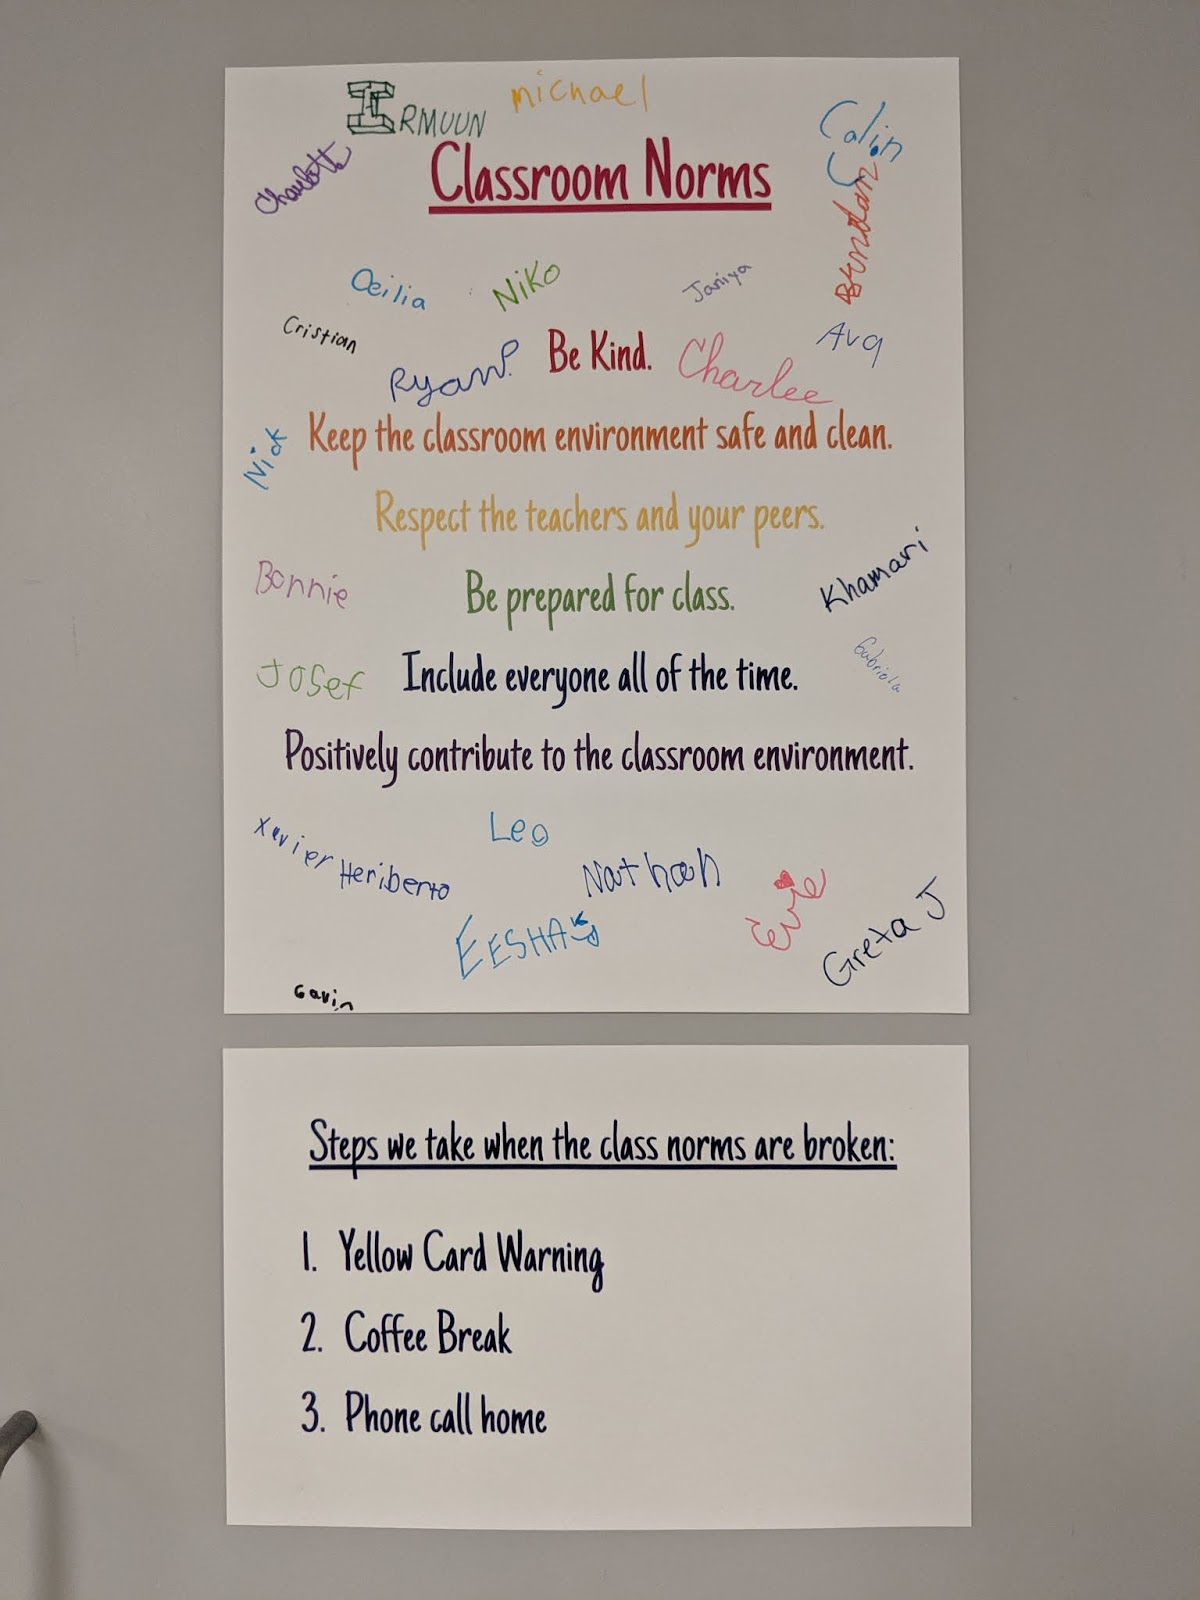 IRMUUN
michael
Calin
Charlotte
Classroom Norms
Brendan
Ceilia
Niko
Janiya
Cristian
Ava
Ryan P.
Be Kind.
Charlee
Nick
Keep the classroom environment safe and clean.
Respect the teachers and your peers.
Bonnie
Be prepared for class.
Khamari
Josef
Include everyone all of the time.
Gabriela
Positively contribute to the classroom environment.
Xavier
Heriberto
Leo
Nathan
Evie
EESHA
Greta J
Gavin
Steps we take when the class norms are broken:
1. Yellow Card Warning
2. Coffee Break
3. Phone call home